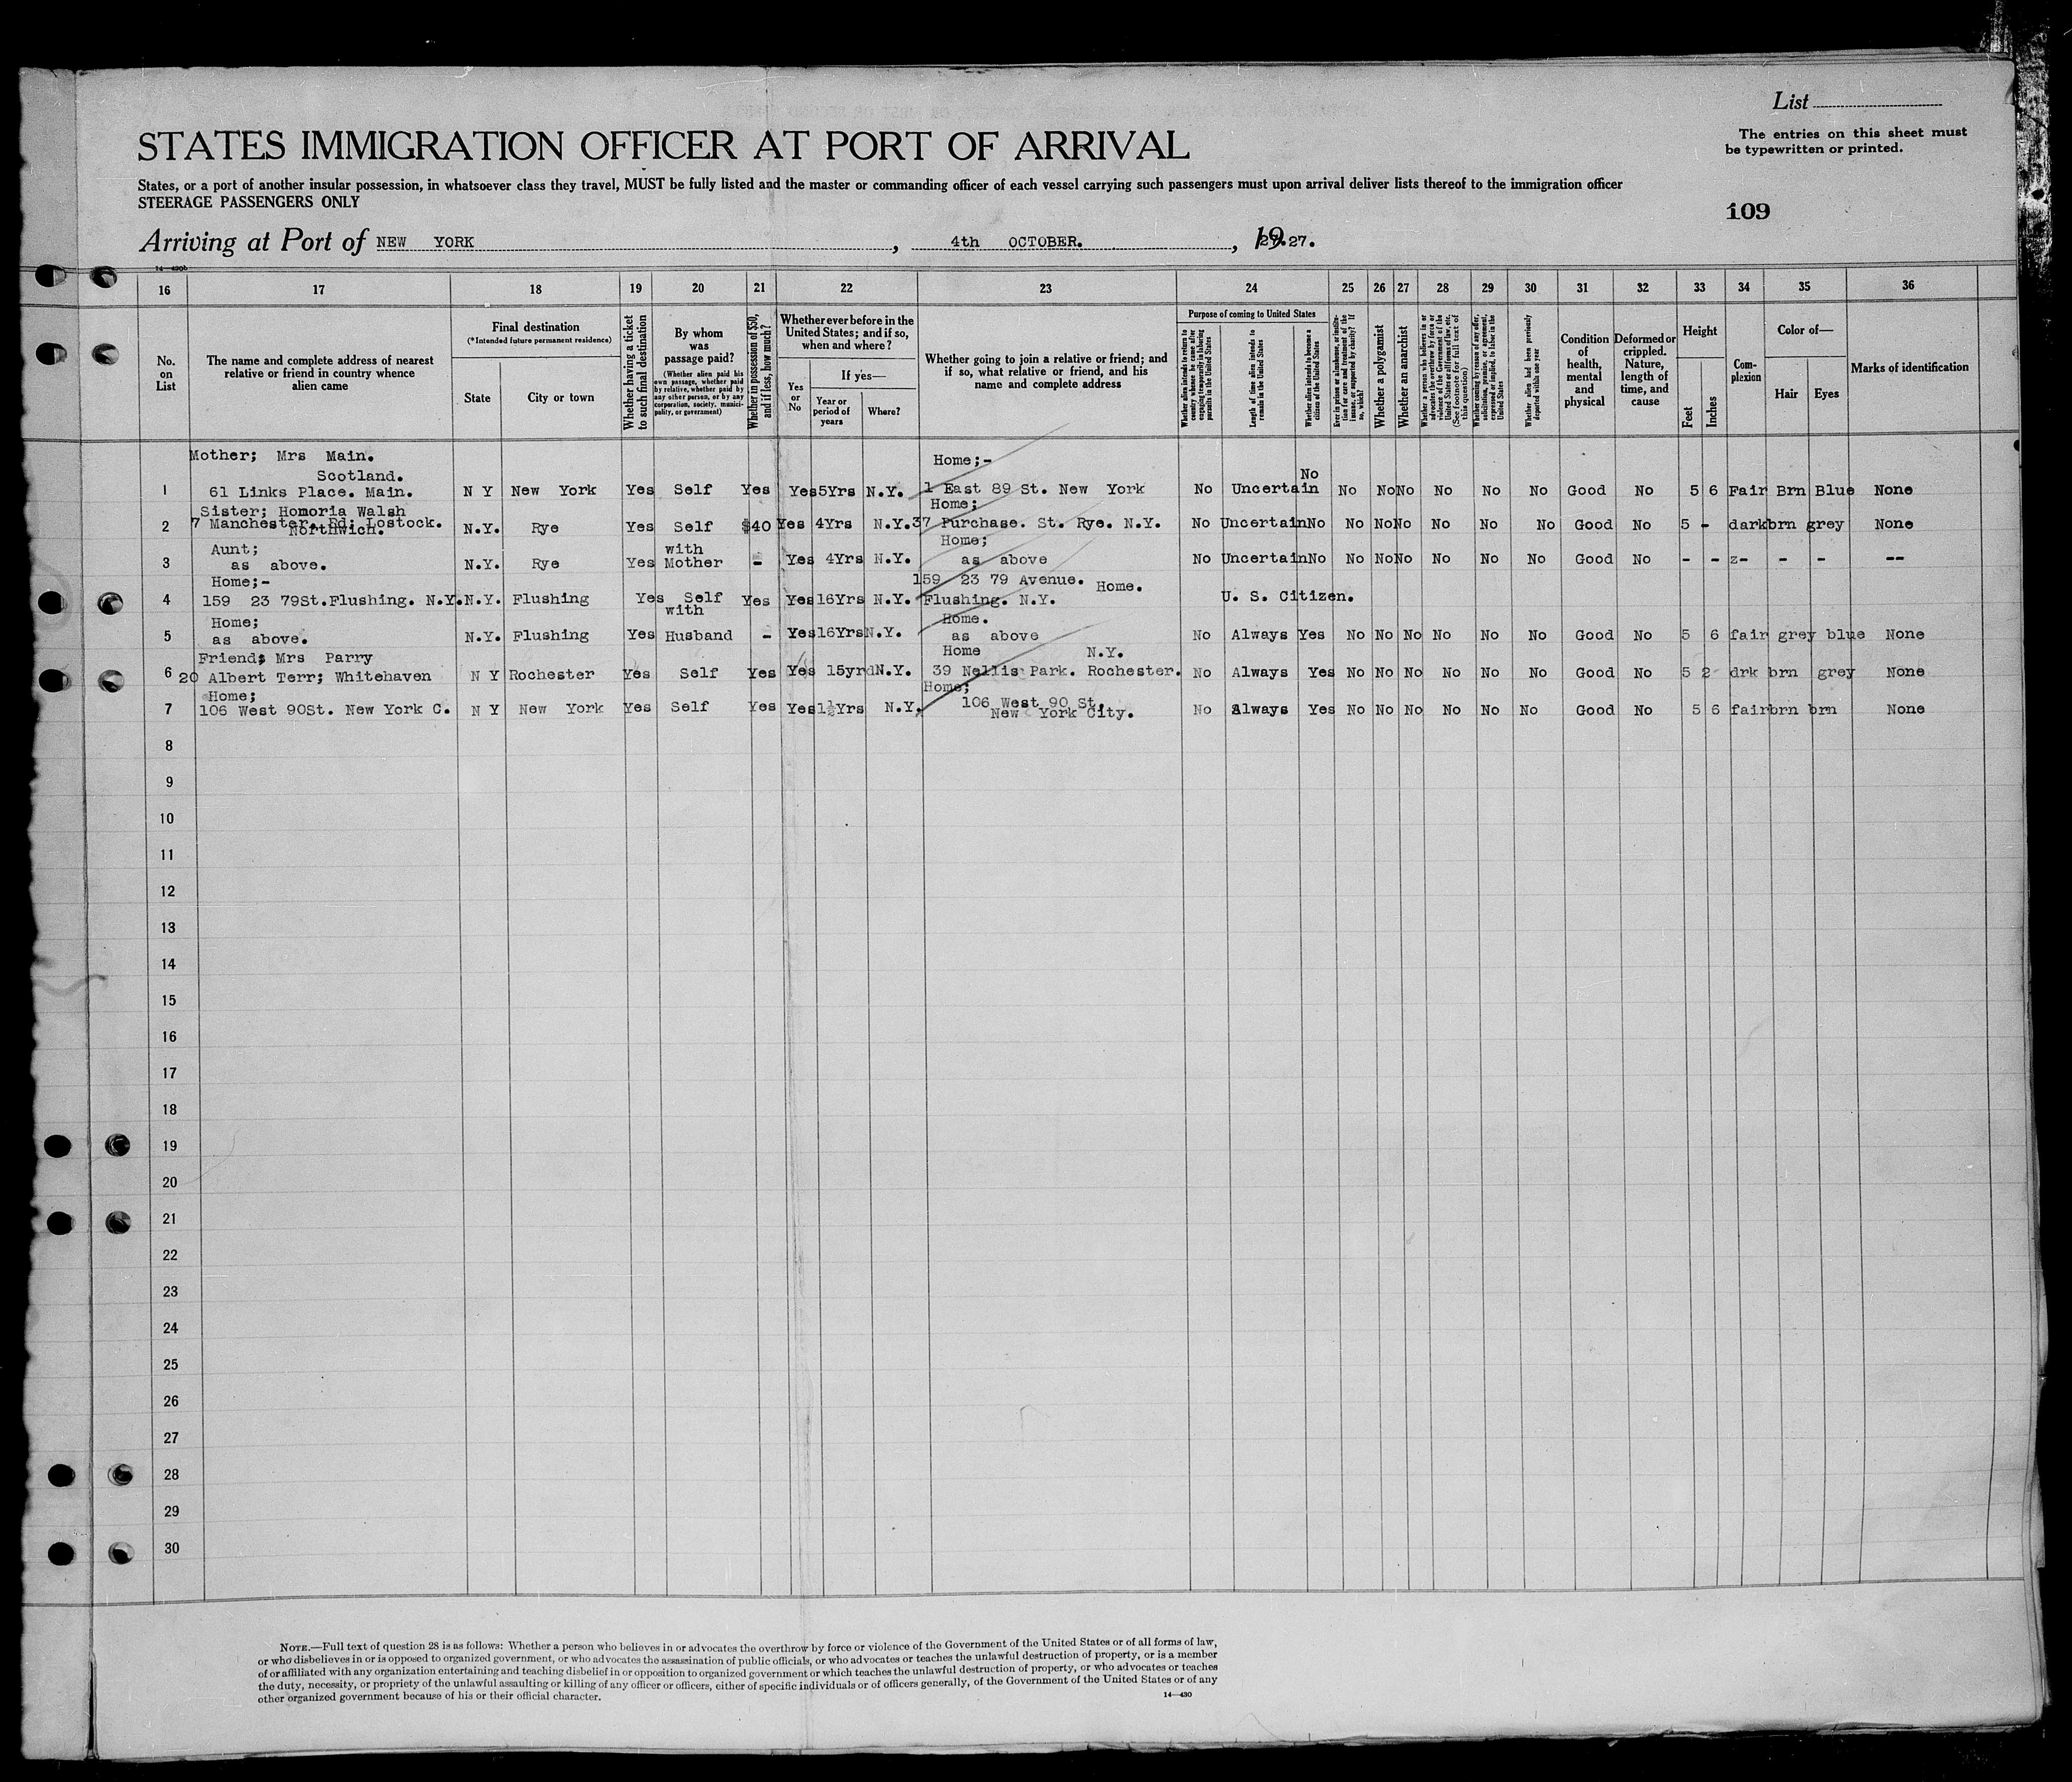 List
The entries on this sheet must
be typewritten or printed.
STATES IMMIGRATION OFFICER AT PORT OF ARRIVAL
States, or a port of another insular possession, in whatsoever class they travel, MUST be fully listed and the master or commanding officer of each vessel carrying such passengers must upon arrival deliver lists thereof to the immigration officer
STEERAGE PASSENGERS ONLY
109
Arriving at Port of NEW YORK , 4th OCTOBER. , 1927.
14—430b
16 17 18 19 20 21 22 23 24 25 26 27 28 29 30 31 32 33 34 35 36
No. on List
The name and complete address of nearest relative or friend in country whence alien came
Final destination
(*Intended future permanent residence)
State
City or town
Whether having a ticket to such final destination
By whom was passage paid?
(Whether alien paid his own passage, whether paid by relative, whether paid by any other person, or by any corporation, society, municipality, or government)
Whether in possession of $50, and if less, how much?
Whether ever before in the United States; and if so, when and where?
Yes or No
If yes—
Year or period of years
Where?
Whether going to join a relative or friend; and if so, what relative or friend, and his name and complete address
Purpose of coming to United States
Whether alien intends to return to country whence he came after engaging temporarily in laboring pursuits in the United States
Length of time alien intends to remain in the United States
Whether alien intends to become a citizen of the United States
Ever in prison or almshouse, or institution for care and treatment of the insane, or supported by charity? If so, which?
Whether a polygamist
Whether an anarchist
Whether a person who believes in or advocates the overthrow by force or violence of the Government of the United States or all forms of law, etc. (See footnote for full text of this question)
Whether coming by reason of any offer, solicitation, promise, or agreement, expressed or implied, to labor in the United States
Whether alien had been previously deported within one year
Condition of health, mental and physical
Deformed or crippled. Nature, length of time, and cause
Height
Feet
Inches
Complexion
Color of—
Hair
Eyes
Marks of identification
Mother; Mrs Main. Home;-
Scotland. No
1 61 Links Place. Main. N Y New York Yes Self Yes Yes 5Yrs N.Y. 1 East 89 St. New York No Uncertain No No No No No No Good No 5 6 Fair Brn Blue None
Sister; Homoria Walsh Home;
2 7 Manchester. Rd; Lostock. N.Y. Rye Yes Self $40 Yes 4Yrs N.Y. 37 Purchase. St. Rye. N.Y. No Uncertain No No No No No No No Good No 5 - dark brn grey None
Northwich.
Aunt; with Home;
3 as above. N.Y. Rye Yes Mother - Yes 4Yrs N.Y. as above No Uncertain No No No No No No No Good No - - z- - - --
Home;- 159 23 79 Avenue. Home.
4 159 23 79St.Flushing. N.Y. N.Y. Flushing Yes Self Yes Yes 16Yrs N.Y. Flushing. N.Y. U. S. Citizen.
Home; with Home.
5 as above. N.Y. Flushing Yes Husband - Yes 16Yrs N.Y. as above No Always Yes No No No No No No Good No 5 6 fair grey blue None
Friend; Mrs Parry Home N.Y.
6 20 Albert Terr; Whitehaven N Y Rochester Yes Self Yes Yes 15yrd N.Y. 39 Nellis Park. Rochester. No Always Yes No No No No No No Good No 5 2 drk brn grey None
Home; Home;
7 106 West 90St. New York C. N Y New York Yes Self Yes Yes 1½Yrs N.Y. 106 West 90 St. No Always Yes No No No No No No Good No 5 6 fair brn brn None
New York City.
8
9
10
11
12
13
14
15
16
17
18
19
20
21
22
23
24
25
26
27
28
29
30
NOTE.—Full text of question 28 is as follows: Whether a person who believes in or advocates the overthrow by force or violence of the Government of the United States or of all forms of law,
or who disbelieves in or is opposed to organized government, or who advocates the assassination of public officials, or who advocates or teaches the unlawful destruction of property, or is a member
of or affiliated with any organization entertaining and teaching disbelief in or opposition to organized government or which teaches the unlawful destruction of property, or who advocates or teaches
the duty, necessity, or propriety of the unlawful assaulting or killing of any officer or officers, either of specific individuals or of officers generally, of the Government of the United States or of any
other organized government because of his or their official character.
14—430